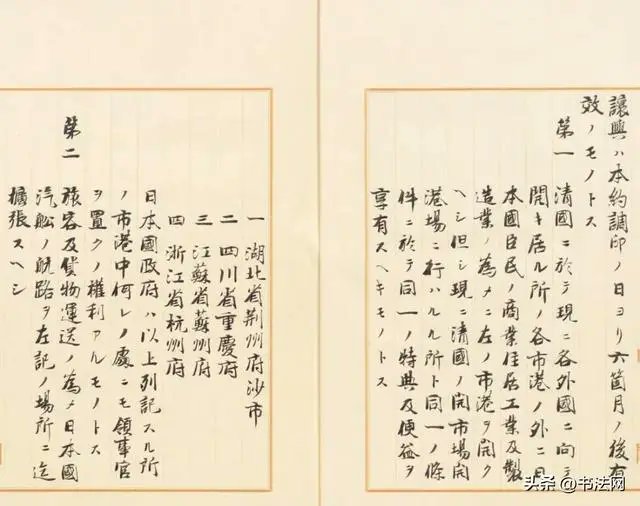 讓與ハ本約調印ノ日ヨリ六箇月ノ後有
效ノモノトス
第一 清國ニ於テ現ニ各外國ニ向テ
開キ居ル所ノ各市港ノ外ニ日
本國臣民ノ商業住居工業及製
造業ノ為メニ左ノ市港ヲ開ク
ヘシ但シ現ニ清國ノ開市場開
港場ニ行ハルル所ト同一ノ條
件ニ於テ同一ノ特典及便益ヲ
享有スヘキモノトス
一 湖北省荆州府沙市
二 四川省重慶府
三 江蘇省蘇州府
四 浙江省杭州府
日本國政府ハ以上列記スル所
ノ市港中何レノ處ニモ領事官
ヲ置クノ權利アルモノトス
第二 旅客及貨物運送ノ為メ日本國
汽舩ノ航路ヲ左記ノ場所ニ迄
擴張スヘシ
头条 @书法网